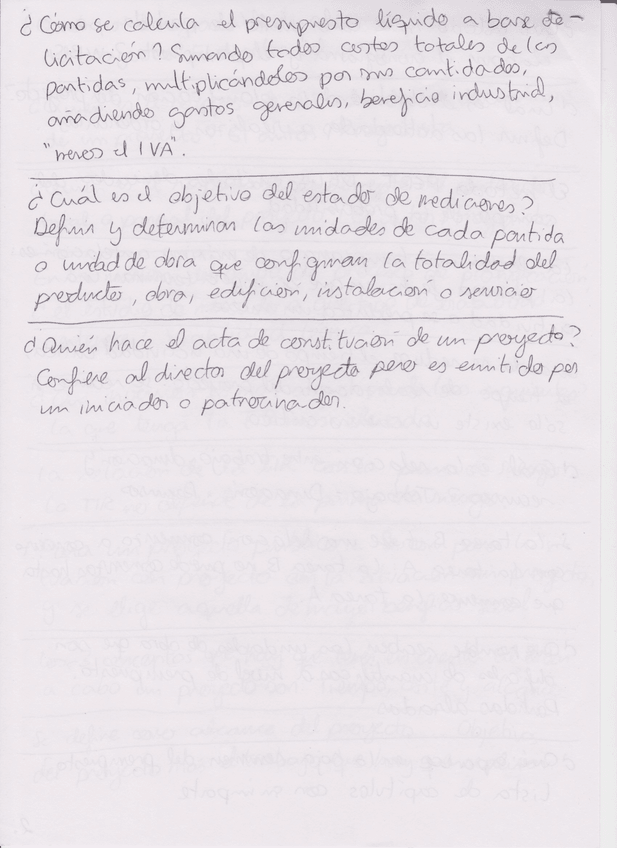 ¿Cómo se calcula el presupuesto líquido a base de
licitación? Sumando todos costes totales de las
partidas, multiplicándolos por sus cantidades,
añadiendo gastos generales, beneficio industrial,
"menos el IVA".
¿Cuál es el objetivo del estado de mediciones?
Definir y determinar las unidades de cada partida
o unidad de obra que configuran la totalidad del
producto, obra, edifición, instalación o servicio
¿Quién hace el acta de constitución de un proyecto?
Confiere al director del proyecto pero es emitido por
un iniciador o patrocinador.